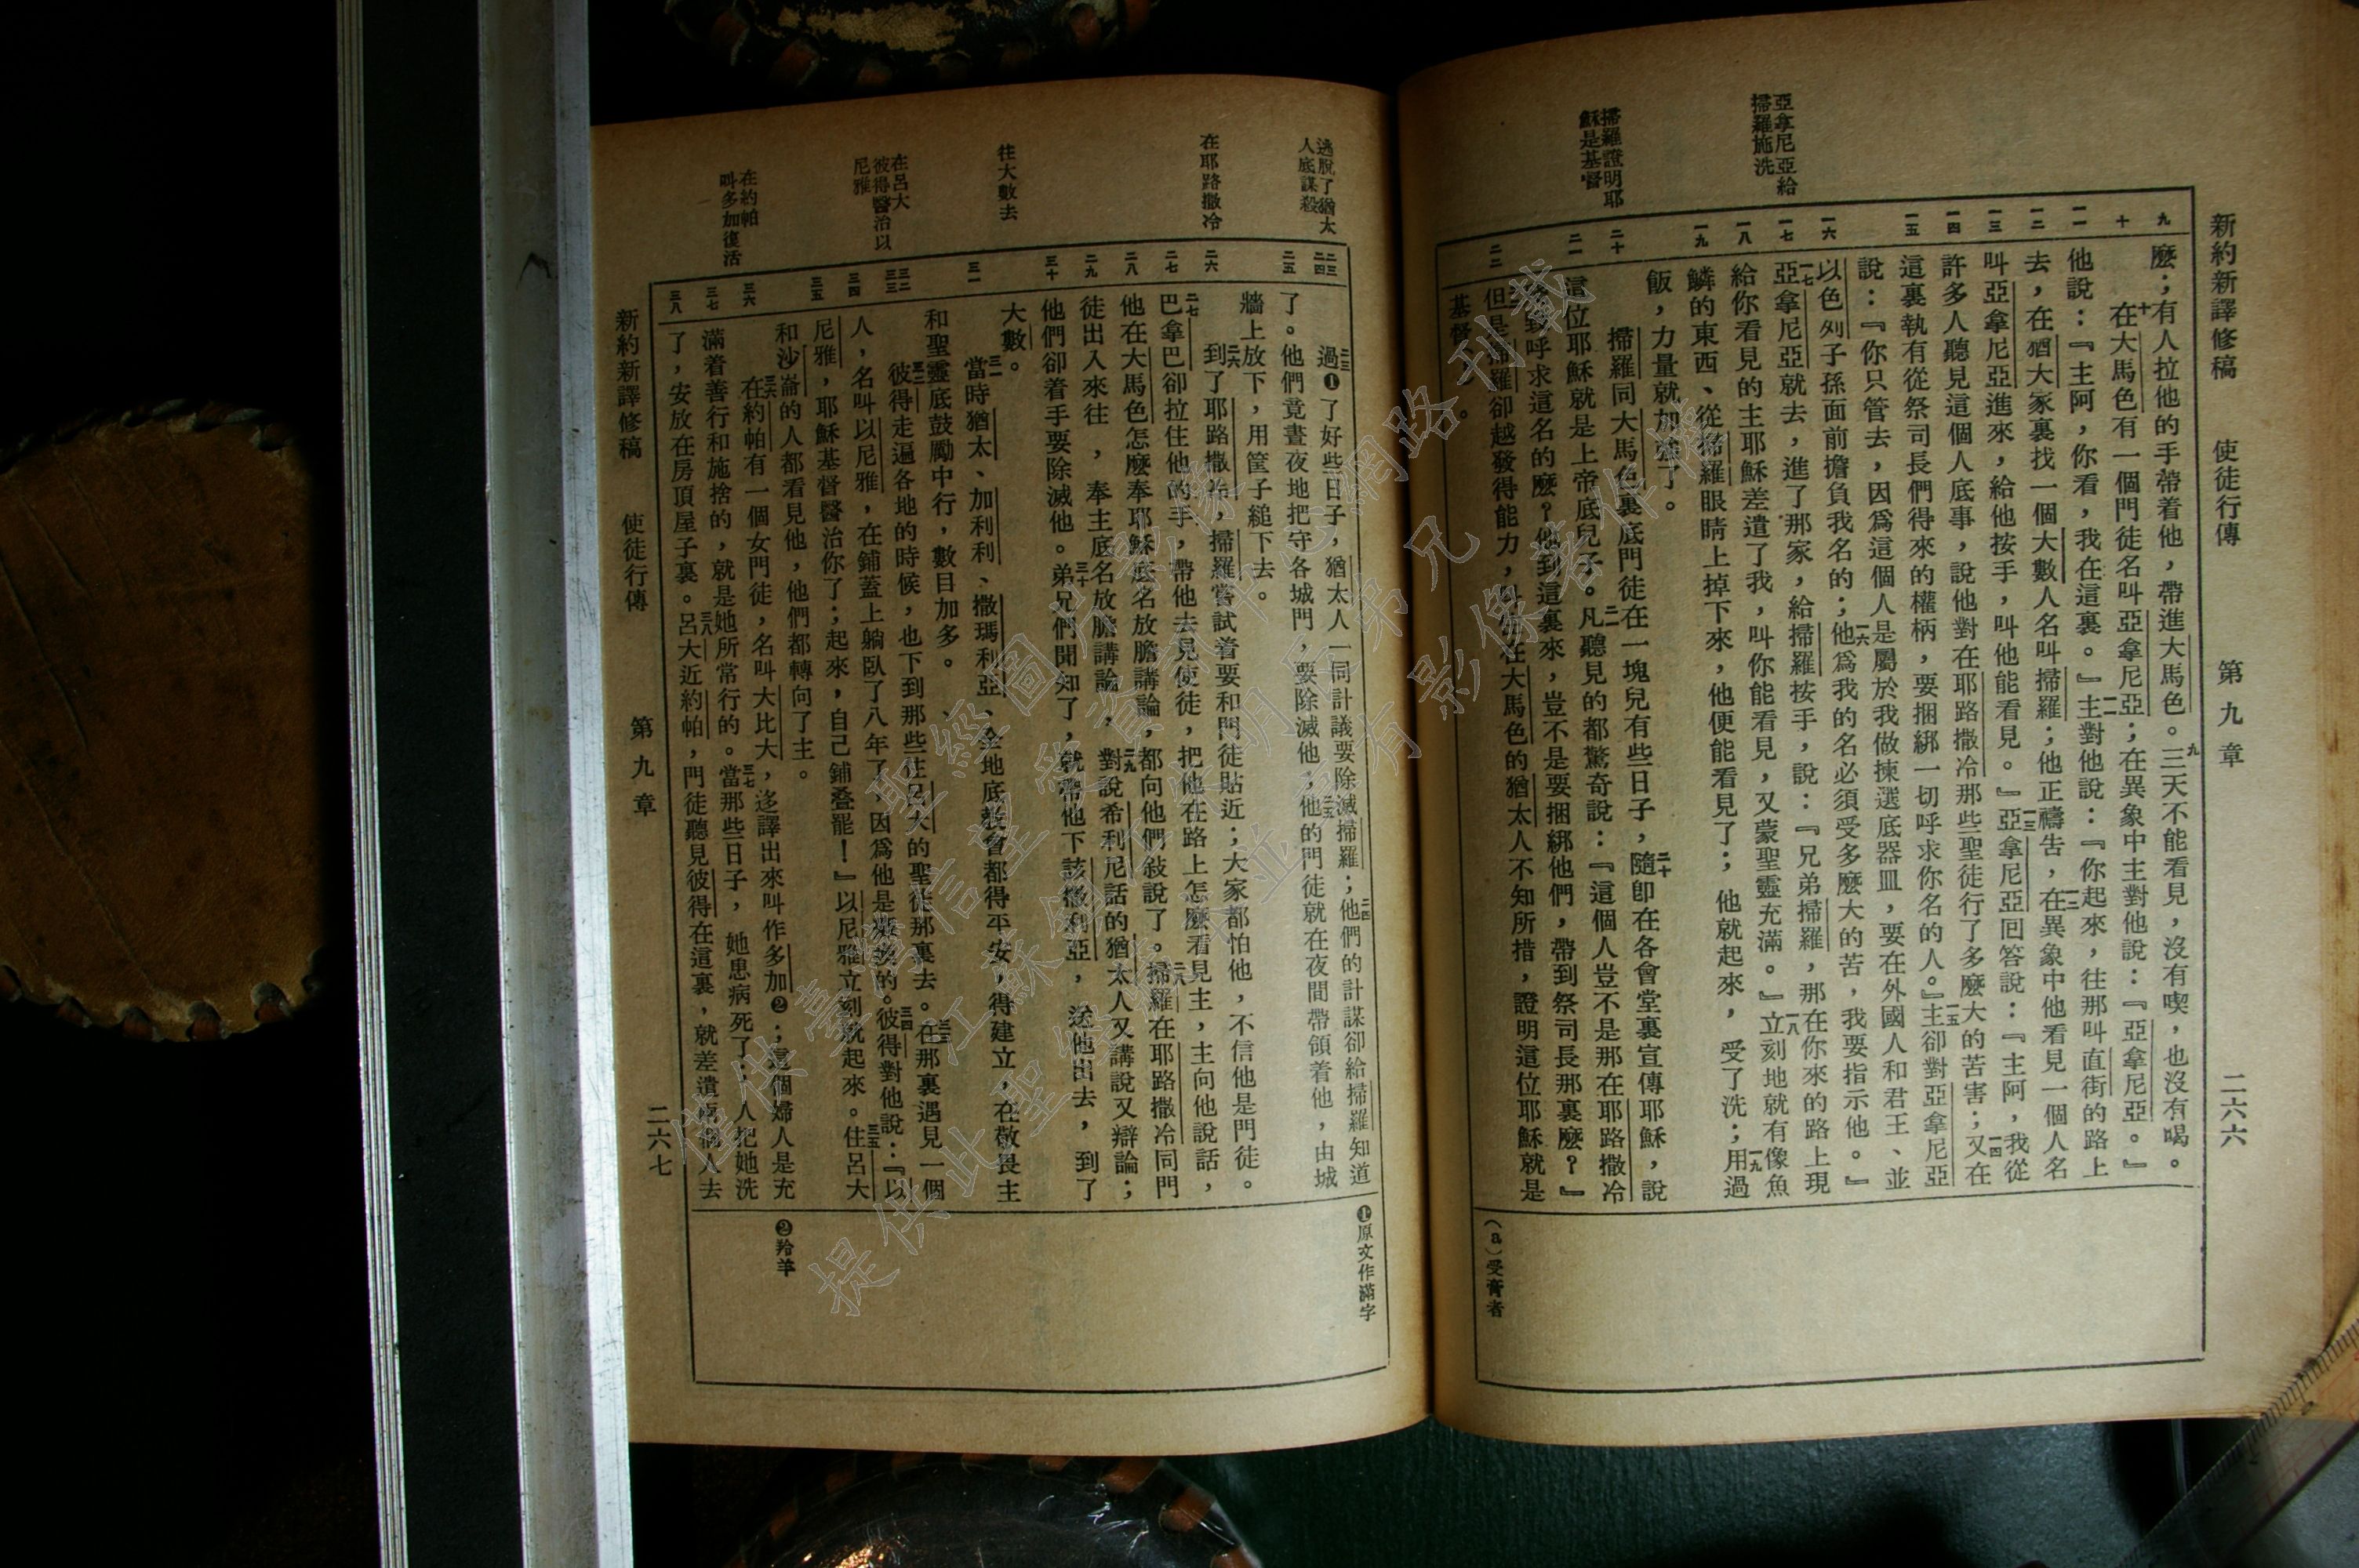 新約新譯修稿　使徒行傳　第九章　二六六
亞拿尼亞給
掃羅施洗
掃羅證明耶
穌是基督
九
十
一一
一二
一三
一四
一五
一六
一七
一八
一九
二十
二一
二二
麽；有人拉他的手帶着他，帶進大馬色。九三天不能看見，沒有喫，也沒有喝。
十在大馬色有一個門徒名叫亞拿尼亞；在異象中主對他說：『亞拿尼亞。』
他說：『主阿，你看，我在這裏。』一一主對他說：『你起來，往那叫直街的路上
去，在猶大家裏找一個大數人名叫掃羅；他正禱告，一二在異象中他看見一個人名
叫亞拿尼亞進來，給他按手，叫他能看見。』一三亞拿尼亞回答說：『主阿，我從
許多人聽見這個人底事，說他對在耶路撒冷那些聖徒行了多麽大的苦害；一四又在
這裏執有從祭司長們得來的權柄，要捆綁一切呼求你名的人。』一五主卻對亞拿尼亞
說：『你只管去，因爲這個人是屬於我做揀選底器皿，要在外國人和君王、並
以色列子孫面前擔負我名的；一六他爲我的名必須受多麽大的苦，我要指示他。』
一七亞拿尼亞就去，進了那家，給掃羅按手，說：『兄弟掃羅，那在你來的路上現
給你看見的主耶穌差遣了我，叫你能看見，又蒙聖靈充滿。』一八立刻地就有像魚
鱗的東西、從掃羅眼睛上掉下來，他便能看見了；他就起來，受了洗；一九用過
飯，力量就加強了。
掃羅同大馬色裏底門徒在一塊兒有些日子，二十隨卽在各會堂裏宣傳耶穌，說
這位耶穌就是上帝底兒子。二一凡聽見的都驚奇說：『這個人豈不是那在耶路撒冷
呼求這名的麽？他到這裏來，豈不是要捆綁他們，帶到祭司長那裏麽？』
但是掃羅卻越發得能力，在大馬色的猶太人不知所措，證明這位耶穌就是
基督。
（a）受膏者
逃脫了猶太
人底謀殺
在耶路撒冷
往大數去
在呂大
彼得醫治以
尼雅
在約帕
叫多加復活
二三
二四
二五
二六
二七
二八
二九
三十
三一
三二
三三
三四
三五
三六
三七
三八
二三過❶了好些日子，猶太人一同計議要除滅掃羅；二四他們的計謀卻給掃羅知道
了。他們竟晝夜地把守各城門，要除滅他；二五他的門徒就在夜間帶領着他，由城
牆上放下，用筐子縋下去。
二六到了耶路撒冷，掃羅嘗試着要和門徒貼近；大家都怕他，不信他是門徒。
二七巴拿巴卻拉住他的手，帶他去見使徒，把他在路上怎麽看見主，主向他說話，
他在大馬色怎麽奉耶穌底名放膽講論，都向他們敍說了。二八掃羅在耶路撒冷同門
徒出入來往，奉主底名放膽講論，二九對說希利尼話的猶太人又講說又辯論；
他們卻着手要除滅他。三十弟兄們聞知了，就帶他下該撒利亞，送他出去，到了
大數。
三一當時猶太、加利利、撒瑪利亞、全地底教會都得平安，得建立，在敬畏主
和聖靈底鼓勵中行，數目加多。
三二彼得走遍各地的時候，也下到那些住呂大的聖徒那裏去。三三在那裏遇見一個
人，名叫以尼雅，在鋪蓋上躺臥了八年了，因爲他是癱瘓的。三四彼得對他說：『以
尼雅，耶穌基督醫治你了；起來，自己鋪叠罷！』以尼雅立刻就起來。三五住呂大
和沙崙的人都看見他，他們都轉向了主。
三六在約帕有一個女門徒，名叫大比大，迻譯出來叫作多加❷；這個婦人是充
滿着善行和施捨的，就是她所常行的。三七當那些日子，她患病死了；人把她洗
了，安放在房頂屋子裏。三八呂大近約帕，門徒聽見彼得在這裏，就差遣兩個人去
❶原文作滿字
❷羚羊
新約新譯修稿　使徒行傳　第九章　二六七